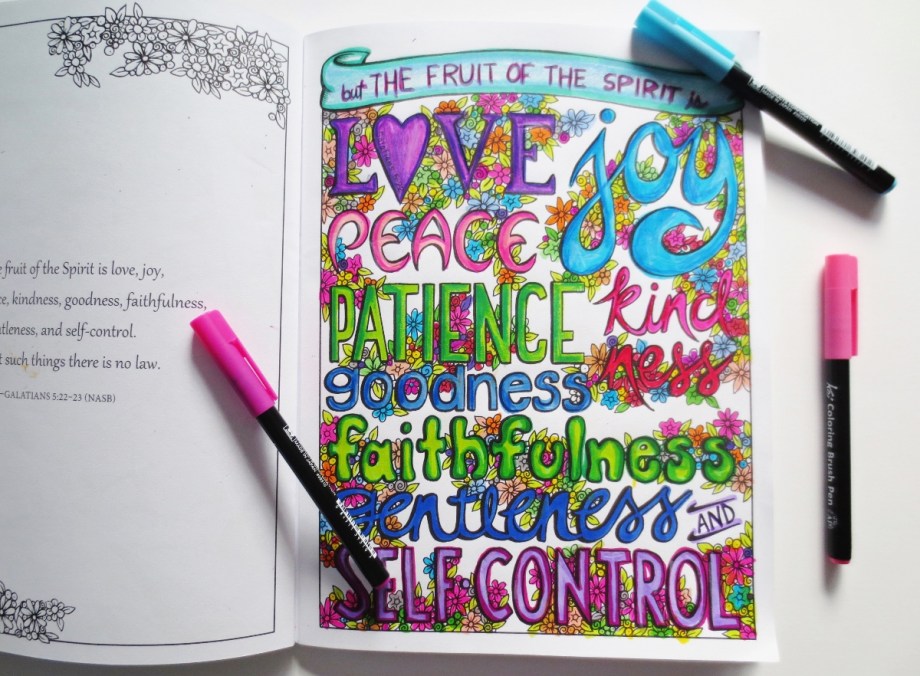 fruit of the Spirit is love, joy,
kindness, goodness, faithfulness,
and self-control.
such things there is no law.
—GALATIANS 5:22–23 (NASB)
but THE FRUIT OF THE SPIRIT is
LOVE joy
PEACE
PATIENCE kind
ness
goodness
faithfulness
gentleness AND
SELF-CONTROL
Coloring Brush Pen